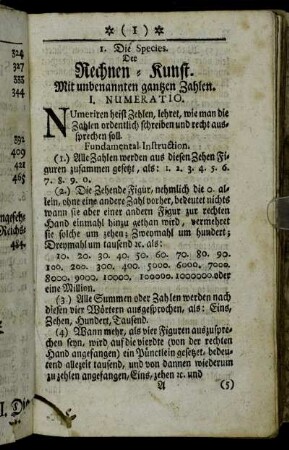 324
327
354
376
384
405
417
451
484.
✲ (1) ✲
1. Die Species.
Der
Rechnen-Kunst.
Mit unbenannten gantzen Zahlen.
I. NUMERATIO.
NUmeriren heist Zehlen, lehret, wie man die
Zahlen ordentlich schreiben und recht aus-
sprechen soll.
Fundamental-Instruction.
(1.) Alle Zahlen werden aus diesen Zehen Fi-
guren zusammen gesetzt, als: 1. 2. 3. 4. 5. 6.
7. 8. 9. 0.
(2.) Die Zehende Figur, nehmlich die 0. al-
lein, ohne eine andere Zahl vorher, bedeutet nichts
wann sie aber einer andern Figur zur rechten
Hand einmahl hinzu gethan wird, vermehret
sie solche um zehen; Zweymahl um hundert;
Dreymahl um tausend ꝛc. als:
10. 20. 30. 40. 50. 60. 70. 80. 90.
100. 200. 300. 400. 5000. 6000. 7000.
8000. 9000. 10000. 100000. 1000000. oder
eine Million.
(3) Alle Summen oder Zahlen werden nach
diesen vier Wörtern ausgesprochen, als: Eins,
Zehen, Hundert, Tausend.
(4) Wann mehr, als vier Figuren auszuspre-
chen seyn, wird auf die vierdte (von der rechten
Hand angefangen) ein Pünctlein gesetzet, bedeu-
tend allezeit tausend, und von dannen wiederum
zu zehlen angefangen, Eins, zehen ꝛc. und
A (5)